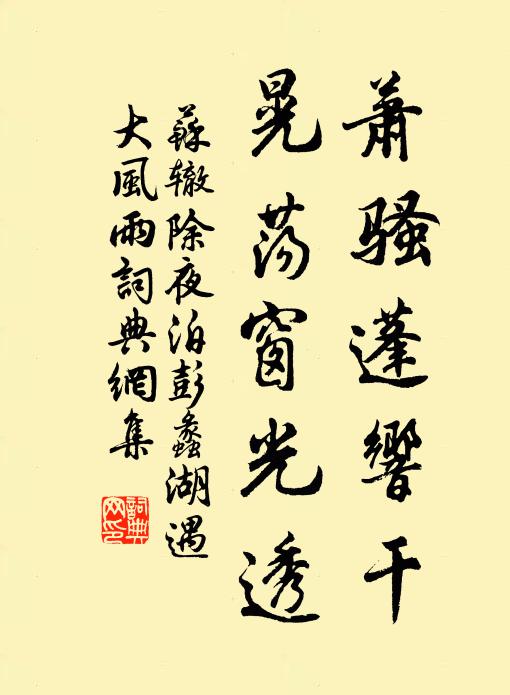 蕭騷蓬響干
晃荡窗光透
蘇辙除夜泊彭蠡湖遇
大風雨詞典網集
詞典网印